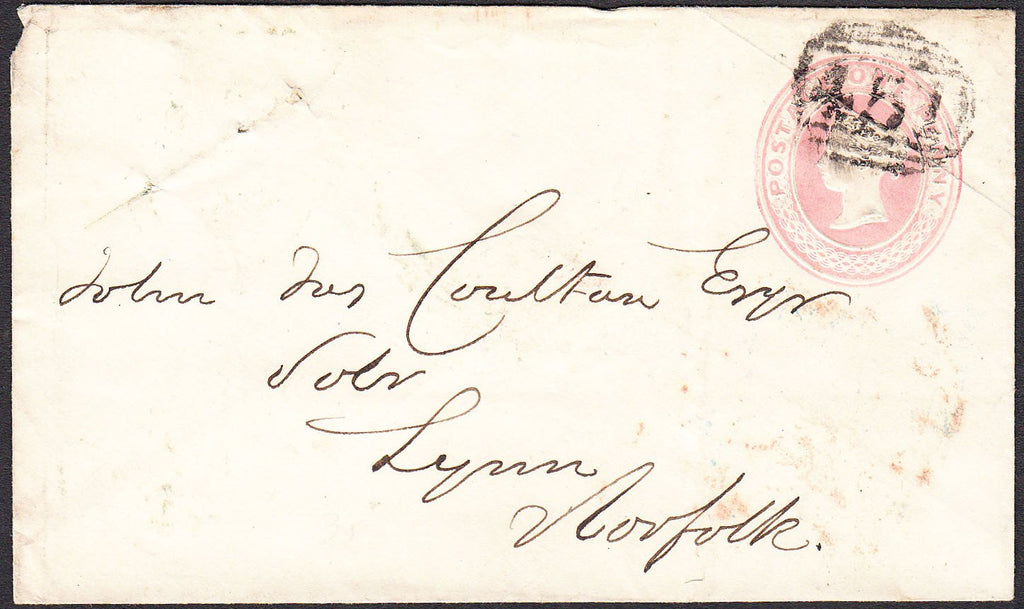 POSTAGE ONE PENNY
15
John Jas Coulton Esqr
Solr
Lynn
Norfolk.